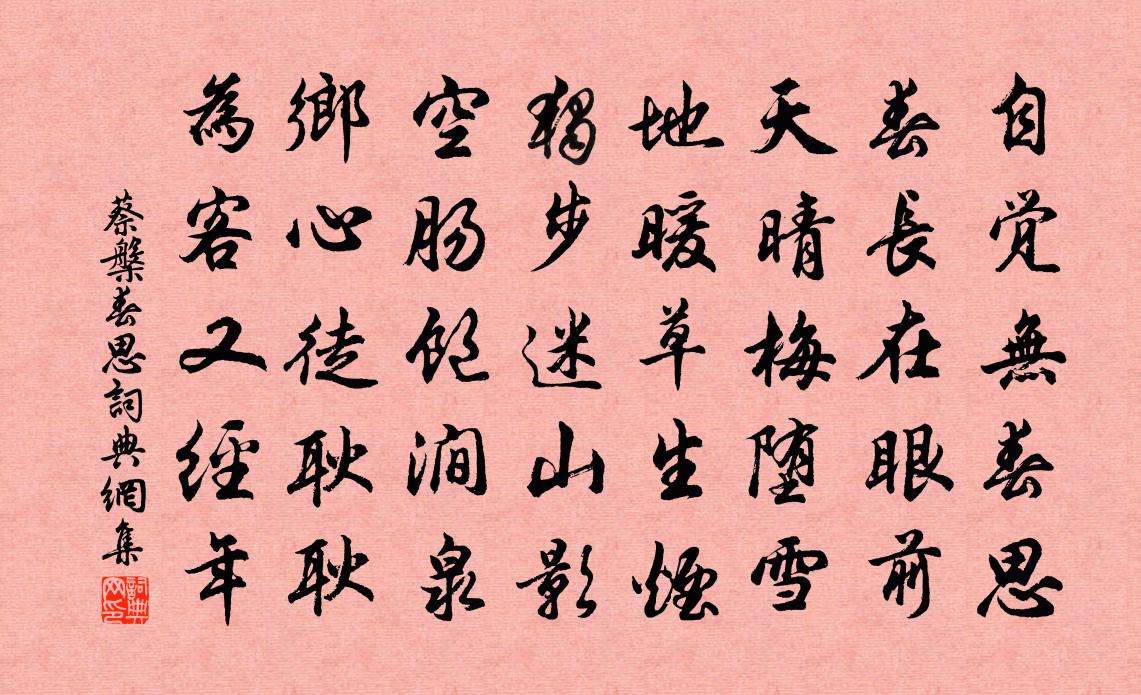 自覚無春思
春長在眼前
天晴梅堕雪
地暖草生煙
獨步迷山影
空腸飽澗泉
鄉心徒耿耿
為客又經年
蔡槃春思詞典網集
詞典网印